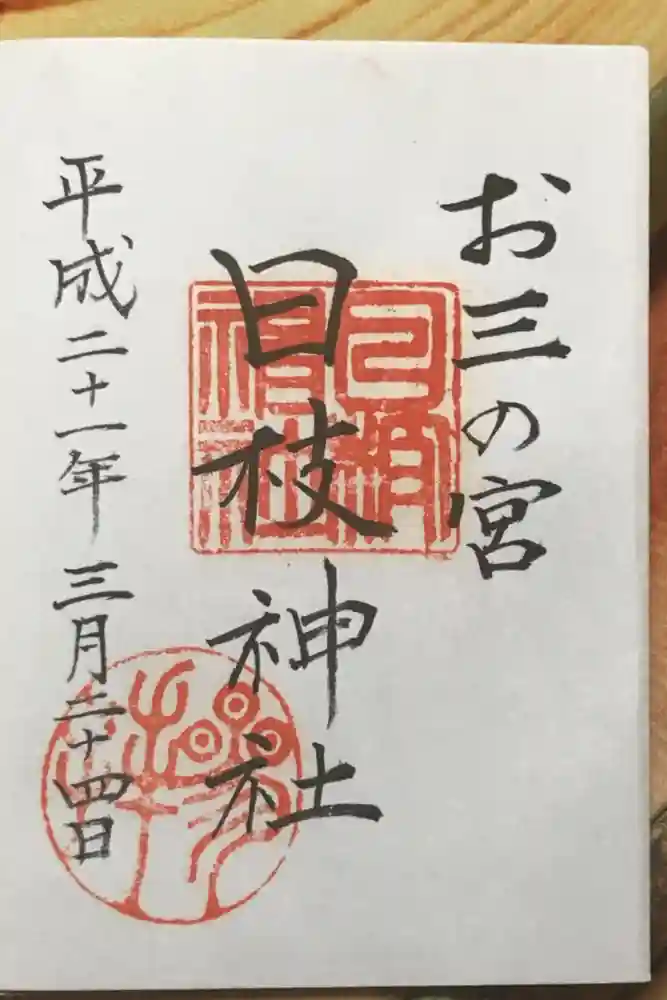 お三の宮
日枝神社
平成二十一年三月二十四日